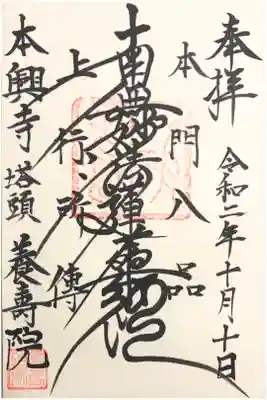 奉拝
令和二年十月十日
本門八品
南無妙法蓮華経
上行所傳
本興寺塔頭養壽院